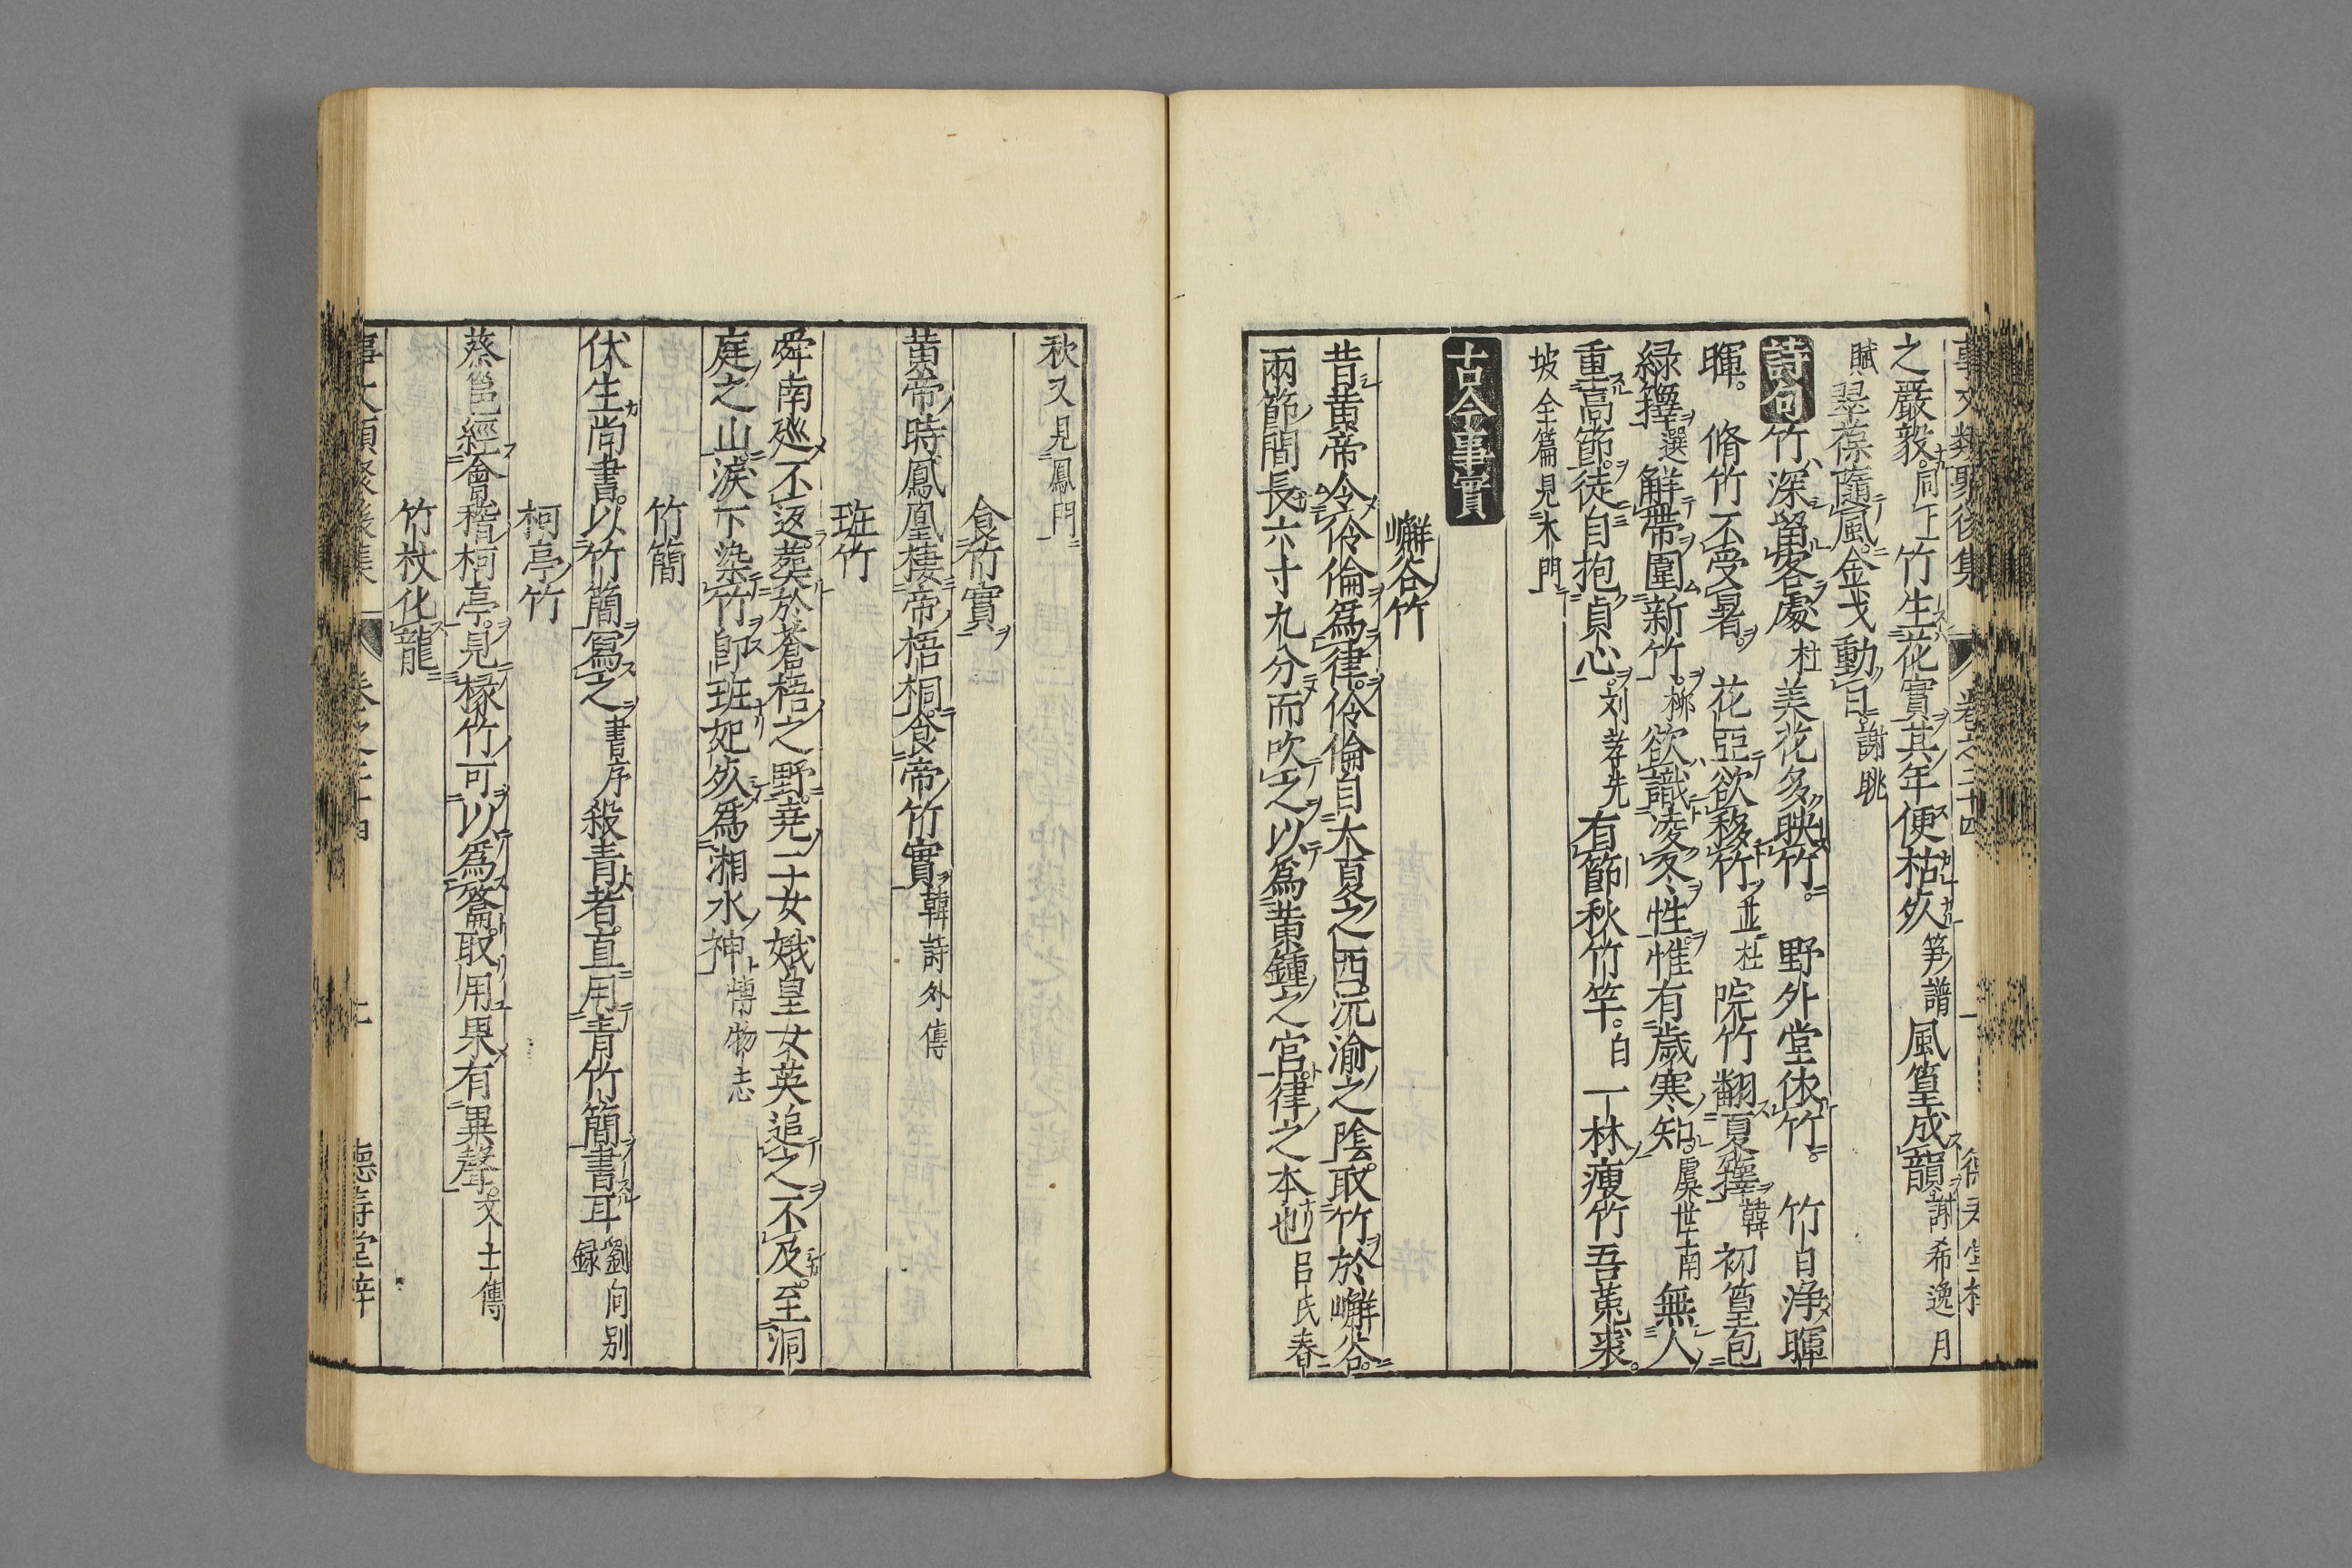 事文類聚後集 卷之二十四
之嚴毅同上竹生花實其年便枯死笋譜風篁成韻謝希逸月
賦翠葆隨風金戈動日謝眺
詩句竹深留客處杜美花多映竹。野外堂依竹。竹日淨暉
暉。脩竹不受暑。花亞欲移竹並杜院竹翻夏籜韓初篁包
綠籜選解帶圍新竹。柳欲識凌冬性惟有歲寒知。虞世南無人
重高節徒自抱貞心。刘孝先有節秋竹竿。白一林瘦竹吾菟裘。
坡全篇見木門
古今事實
嶰谷竹
昔黄帝令伶倫爲律。伶倫自大夏之西沅渝之陰。取竹於嶰谷。
兩節間長六寸九分而吹之以爲黄鍾之宫律之本也呂氏春
秋又見鳳門
食竹實
黄帝時鳳凰棲帝梧桐食帝竹實韓詩外傳
班竹
舜南廵不返。葬於蒼梧之野。堯二女娥皇女英追之不及。至洞
庭之山淚下染竹卽班妃死爲湘水神博物志
竹簡
伏生尚書。以竹簡寫之書序殺青者。直用青竹簡書耳劉向别
録
柯亭竹
蔡邕經會稽柯亭。見椽竹可以爲簫。取用果有異聲。文士傳
竹杖化龍
事文類聚後集 卷之二十四 德壽堂梓